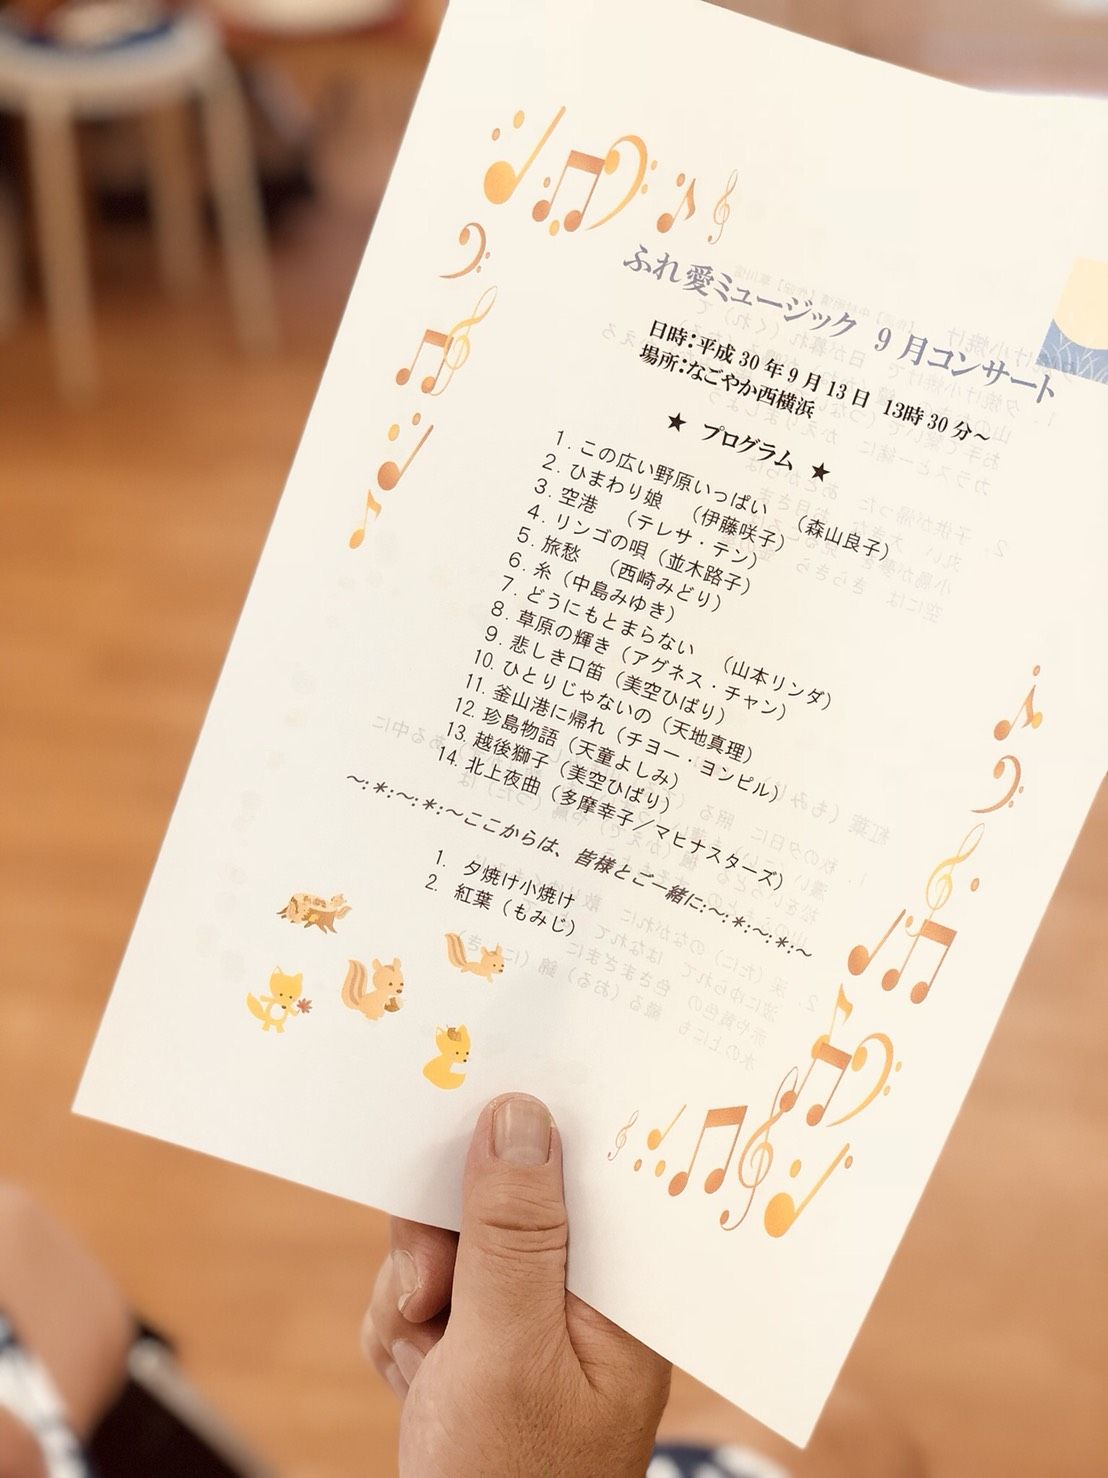 ふれ愛ミュージック 9月コンサート
日時：平成30年9月13日 13時30分～
場所：なごやか西横浜
★ プログラム ★
1. この広い野原いっぱい （森山良子）
2. ひまわり娘 （伊藤咲子）
3. 空港 （テレサ・テン）
4. リンゴの唄（並木路子）
5. 旅愁 （西崎みどり）
6. 糸（中島みゆき）
7. どうにもとまらない （山本リンダ）
8. 草原の輝き（アグネス・チャン）
9. 悲しき口笛（美空ひばり）
10. ひとりじゃないの（天地真理）
11. 釜山港に帰れ（チヨー・ヨンピル）
12. 珍島物語（天童よしみ）
13. 越後獅子（美空ひばり）
14. 北上夜曲（多摩幸子／マヒナスターズ）
～:＊:～:＊:～ここからは、皆様とご一緒に:～:＊:～:＊:～
1. 夕焼け小焼け
2. 紅葉（もみじ）